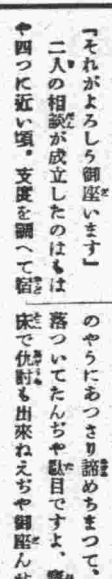 『それがよろしう御座います』
二人の相談が成立したのはもは
や四つに近い頃。支度を調へて宿
のやうにあつさり諦めちまつて。
落ついてたんぢや駄目ですよ、
床で仇討も出來ねえぢや御座んせ